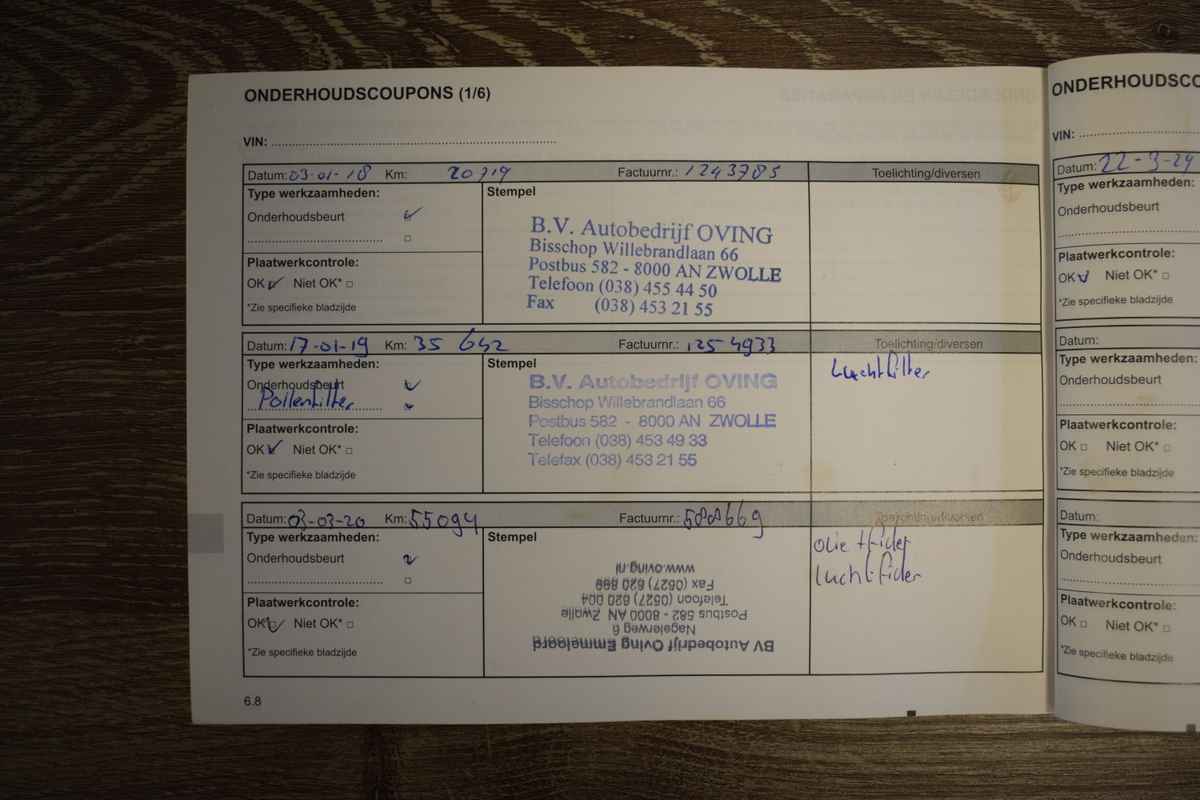 ONDERHOUDSCOUPONS (1/6)
VIN:
Datum: 03-01-18 Km: 20719 Factuurnr.: 1243785 Toelichting/diversen
Type werkzaamheden:
Stempel
Onderhoudsbeurt
Plaatwerkcontrole:
OK Niet OK*
*Zie specifieke bladzijde
B.V. Autobedrijf OVING
Bisschop Willebrandlaan 66
Postbus 582 - 8000 AN ZWOLLE
Telefoon (038) 455 44 50
Fax (038) 453 21 55
Datum: 17-01-19 Km: 35 642 Factuurnr.: 1254933 Toelichting/diversen
Type werkzaamheden:
Stempel
Onderhoudsbeurt
Pollenfilter
Plaatwerkcontrole:
OK Niet OK*
*Zie specifieke bladzijde
B.V. Autobedrijf OVING
Bisschop Willebrandlaan 66
Postbus 582 - 8000 AN ZWOLLE
Telefoon (038) 453 49 33
Telefax (038) 453 21 55
Luchtfilter
Datum: 03-03-20 Km: 55094 Factuurnr.: 588669 Toelichting/diversen
Type werkzaamheden:
Stempel
Onderhoudsbeurt
Plaatwerkcontrole:
OK Niet OK*
*Zie specifieke bladzijde
BV Autobedrijf Oving Emmeloord
Nagelerweg 6
Postbus 582 - 8000 AN Zwolle
Telefoon (0527) 620 004
Fax (0527) 620
www.oving.nl
olie + filter
luchtfilter
6.8
ONDERHOUDSCO
VIN:
Datum: 22-3-29
Type werkzaamheden:
Onderhoudsbeurt
Plaatwerkcontrole:
OK Niet OK*
*Zie specifieke bladzijde
Datum:
Type werkzaamheden:
Onderhoudsbeurt
Plaatwerkcontrole:
OK Niet OK*
*Zie specifieke bladzijde
Datum:
Type werkzaamheden:
Onderhoudsbeurt
Plaatwerkcontrole:
OK Niet OK*
*Zie specifieke bladzijde